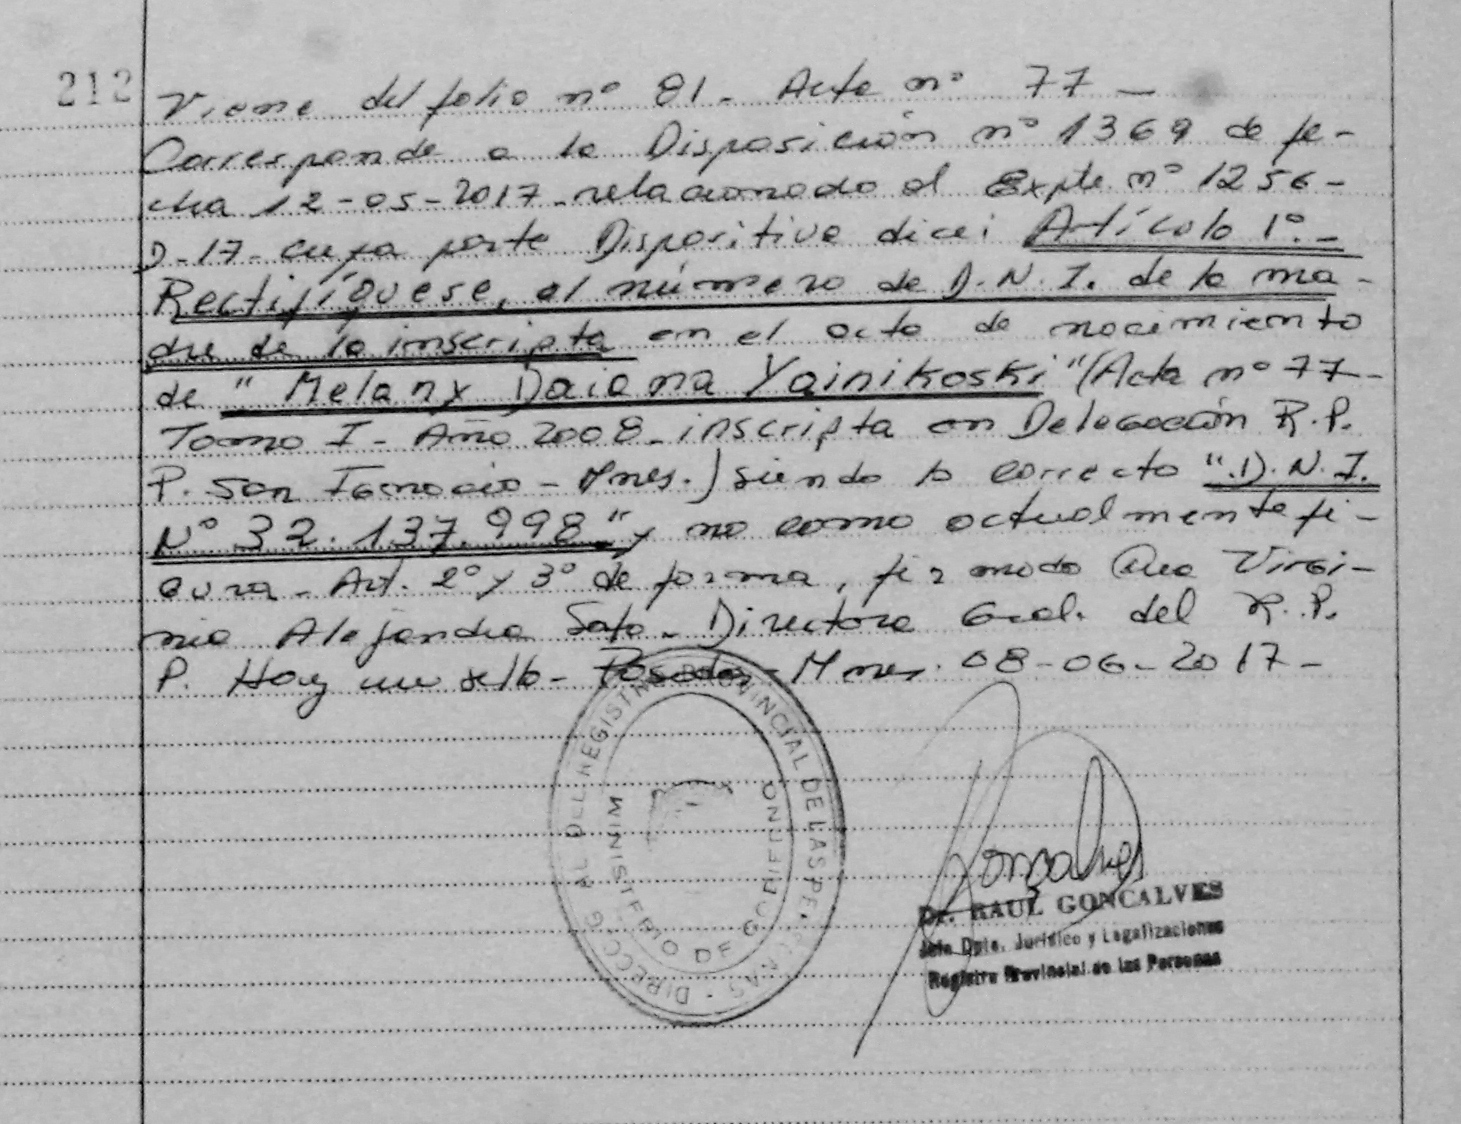 212
Viene del folio nº 81. Acta nº 77 —
Corresponde a la Disposición nº 1369 de fe-
cha 12-05-2017 relacionado al Expte. nº 1256-
D-17- cuya parte Dispositiva dice: Artículo 1º.-
Rectifíquese, el número de D.N.I. de la ma-
dre de la inscripta en el acta de nacimiento
de "Melany Daiana Yainikoski" (Acta nº 77-
Tomo I - Año 2008- inscripta en Delegación R.P.
P. San Ignacio - Mnes.) siendo lo correcto "D.N.I.
Nº 32.137.998" y no como actualmente fi-
gura - Art. 2º y 3º de forma, firmado Ana Virgi-
nia Alejandra Safo. Directora Gral. del R.P.
P. Hay un sello - Posadas - Mnes. 08-06-2017-
DIRECC. G AL DEL REGISTRO PROVINCIAL DE LAS PERSONAS
MINISTERIO DE GOBIERNO
Goncalves
Dr. RAUL GONCALVES
Jefe Dpto. Jurídico y Legalizaciones
Registro Provincial de las Personas